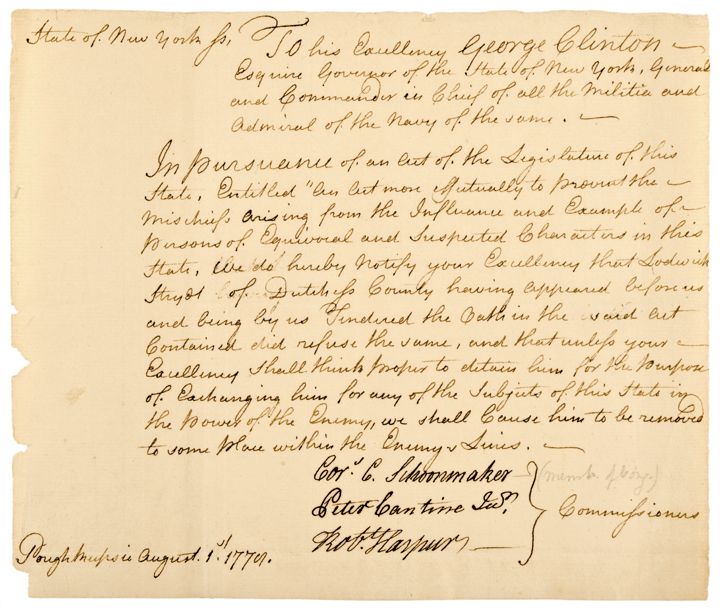 State of New York ss,
To his Excellency George Clinton
Esquire Governor of the State of New York, General
and Commander in Chief of all the Militia and
Admiral of the Navy of the same.
In pursuance of an act of the Legislature of this
State, Entitled "An act more effectually to prevent the
mischiefs arising from the Influence and Example of
Persons of Equivocal and Suspected Characters in this
State, We do hereby Notify your Excellency that Lodwick
of Dutchess County having appeared before us
and being by us Tendred the Oath in the said act
Contained did refuse the same, and that unless your
Excellency shall think proper to detain him for the Purpose
of Exchanging him for any of the Subjects of this State in
the Power of the Enemy, we shall Cause him to be removed
to some Place within the Enemys Lines.
Cors. C. Schoonmaker (memb. of Cong.)
Peter Cantine Junr. Commissioners
Robt. Harpur
Poughkeepsie August 1st